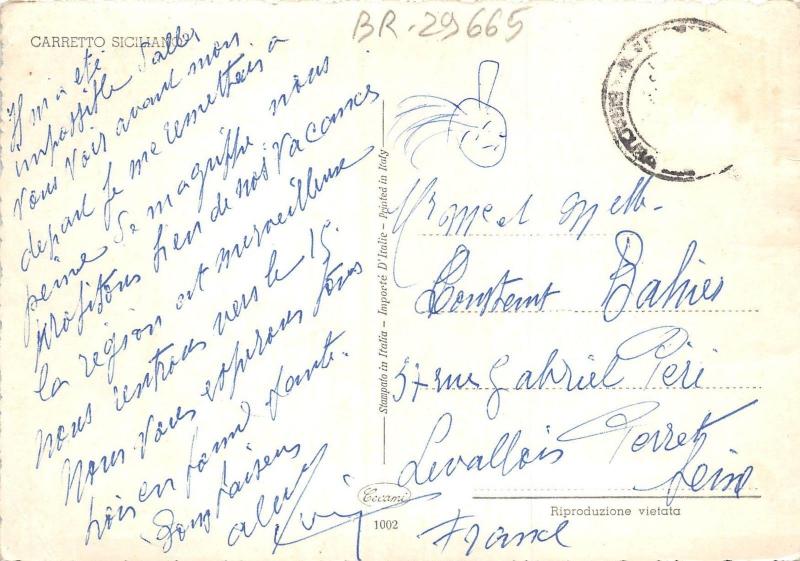 BR-29665
CARRETTO SICILIANO
Il m'a été
impossible d'aller
vous voir avant mon
départ je me remettais à
peine
magnifique nous
profitons bien de nos vacances
la région est merveilleuse
nous rentrons vers le 15.
Nous vous espérons tous
trois en bonne santé.
Bons baisers
Stampato in Italia - Importé D'Italie - Printed in Italy
Constant Bahies
57 rue Gabriel Péri
Levallois Perret
Seine
France
Cecami
1002
Riproduzione vietata